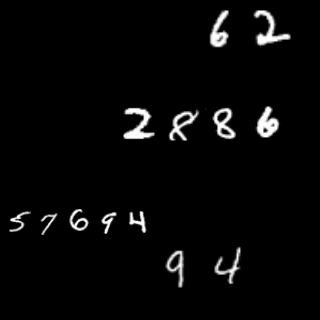 62
2886
57694
94